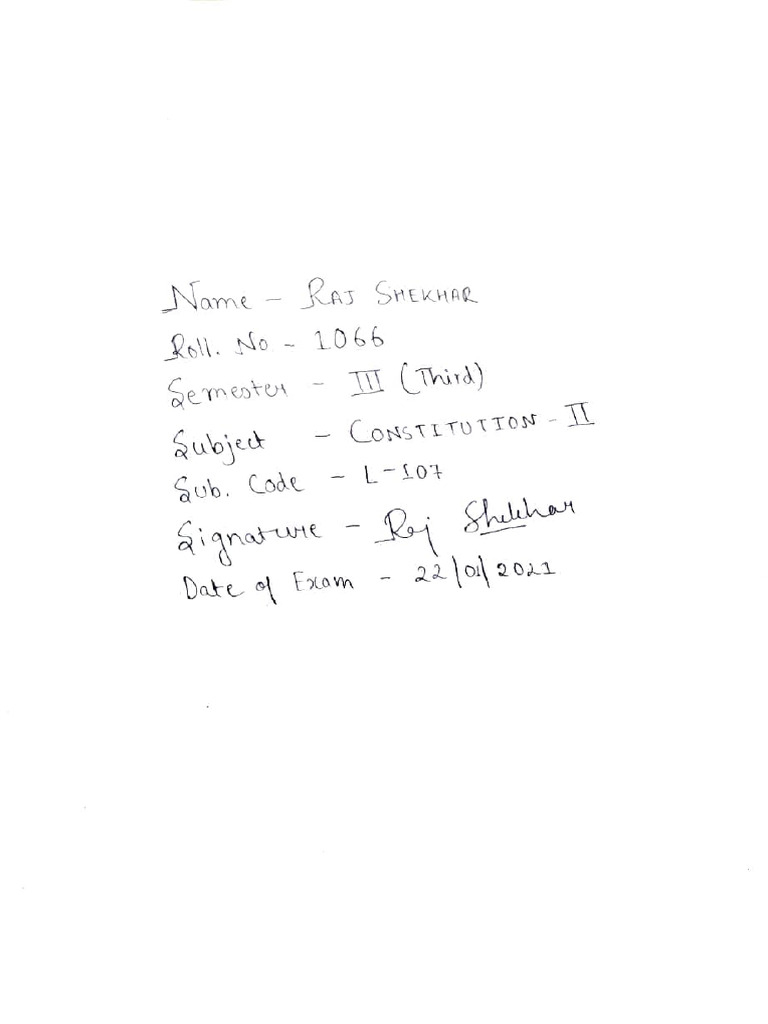 Name - RAJ SHEKHAR
Roll. No - 1066
Semester - III (Third)
Subject - CONSTITUTION - II
Sub. Code - L-107
Signature - Raj Shekhar
Date of Exam - 22/01/2021